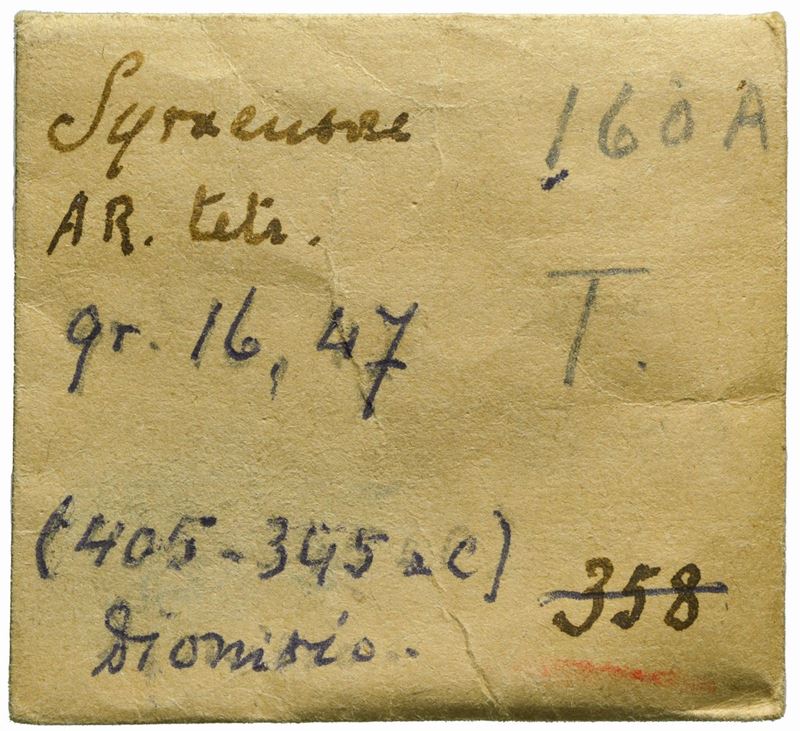 Syracusae
160A
AR. tetr.
T.
gr. 16,47
(405-345 a C)
358
Dionisio.